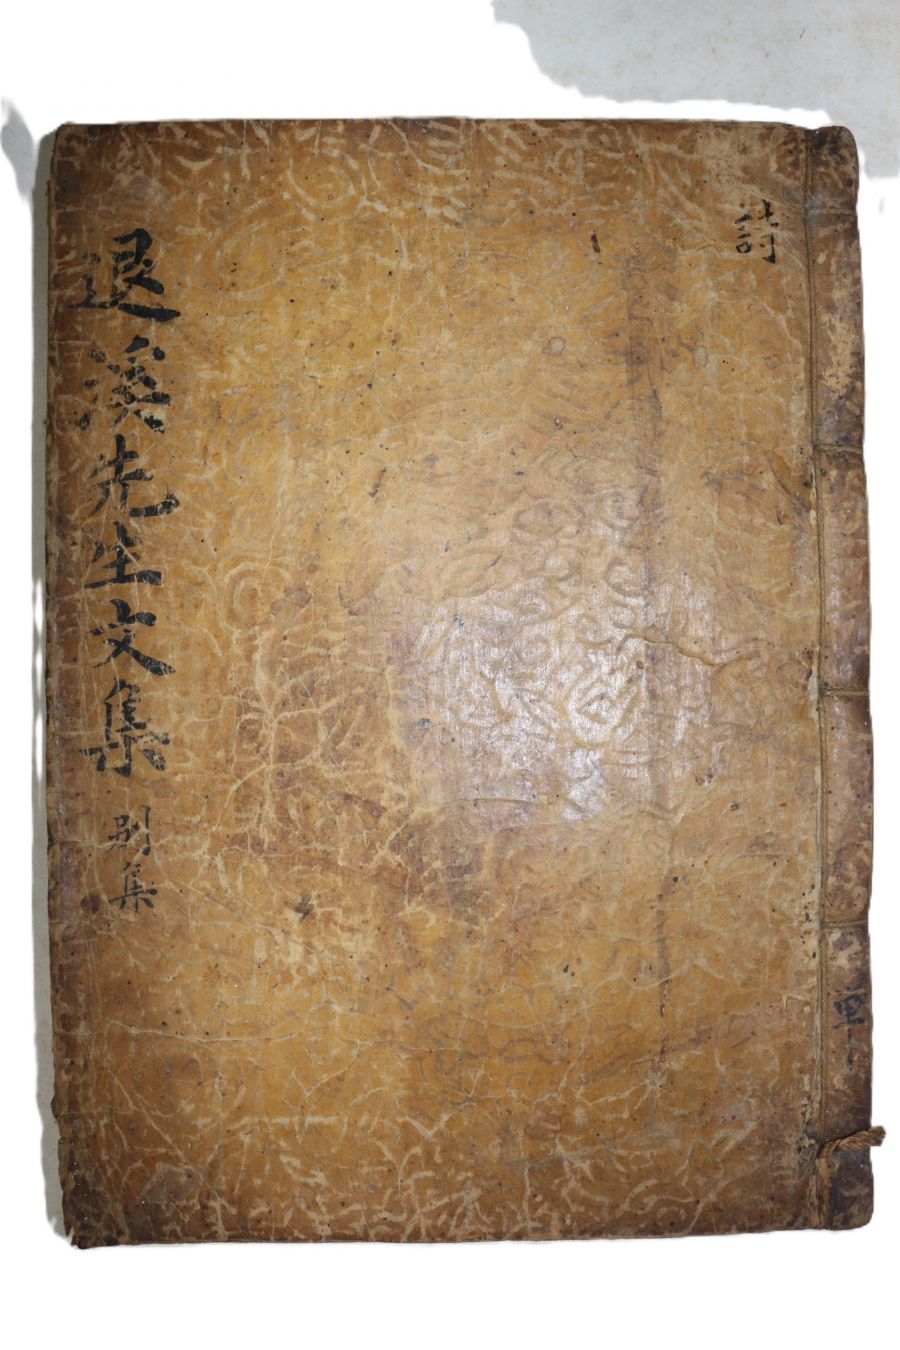 詩
退溪先生文集 別集
単